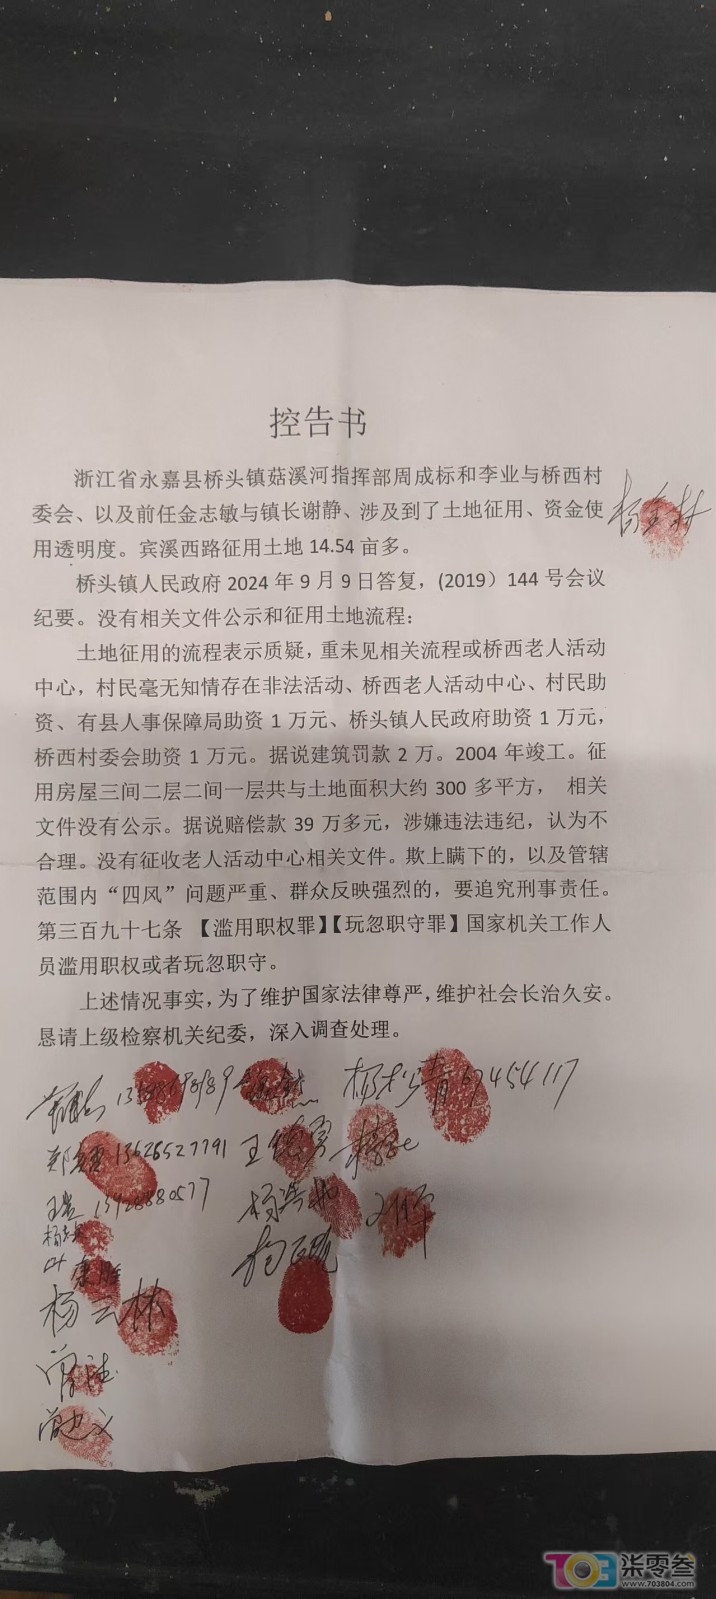 控告书
浙江省永嘉县桥头镇菇溪河指挥部周成标和李业与桥西村
委会、以及前任金志敏与镇长谢静、涉及到了土地征用、资金使
用透明度。宾溪西路征用土地 14.54 亩多。
桥头镇人民政府 2024 年 9 月 9 日答复，(2019）144 号会议
纪要。没有相关文件公示和征用土地流程：
土地征用的流程表示质疑，重未见相关流程或桥西老人活动
中心，村民毫无知情存在非法活动、桥西老人活动中心、村民助
资、有县人事保障局助资 1 万元、桥头镇人民政府助资 1 万元，
桥西村委会助资 1 万元。据说建筑罚款 2 万。2004 年竣工。征
用房屋三间二层二间一层共与土地面积大约 300 多平方， 相关
文件没有公示。据说赔偿款 39 万多元，涉嫌违法违纪，认为不
合理。没有征收老人活动中心相关文件。欺上瞒下的，以及管辖
范围内“四风”问题严重、群众反映强烈的，要追究刑事责任。
第三百九十七条 【滥用职权罪】【玩忽职守罪】国家机关工作人
员滥用职权或者玩忽职守。
上述情况事实，为了维护国家法律尊严，维护社会长治久安。
恳请上级检察机关纪委，深入调查处理。
67454117
13626527791
杨云林
703柒零叁
www.703804.com